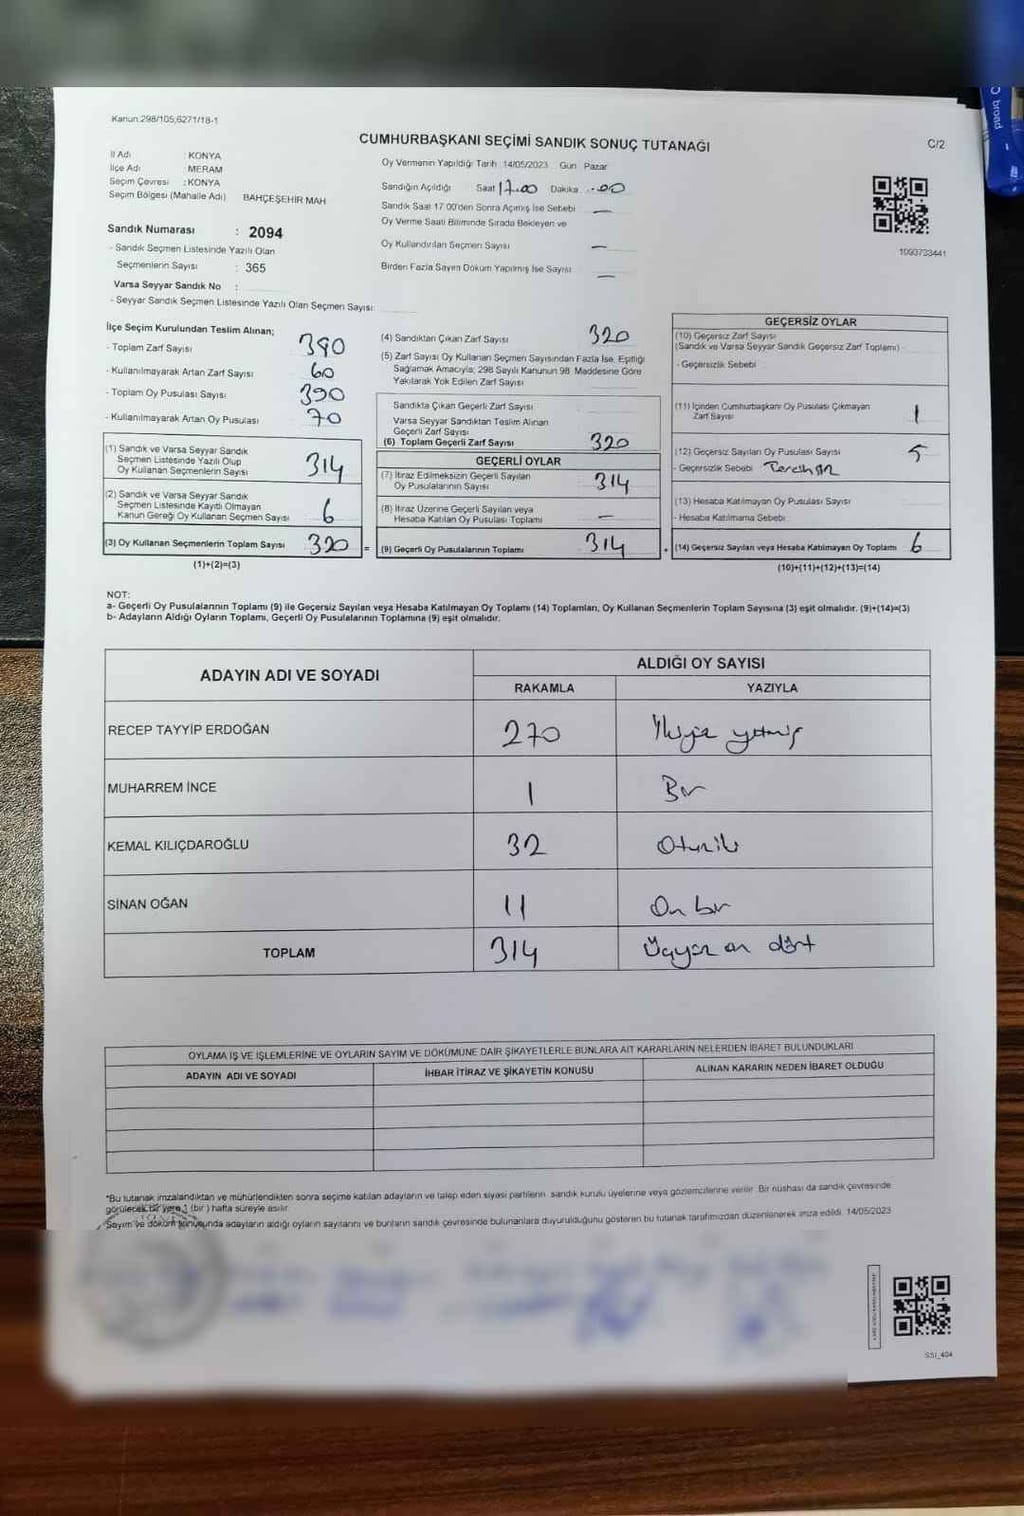 Kanun:298/105,6271/18-1
CUMHURBAŞKANI SEÇİMİ SANDIK SONUÇ TUTANAĞI
C/2
İl Adı : KONYA
İlçe Adı : MERAM
Seçim Çevresi : KONYA
Seçim Bölgesi (Mahalle Adı) BAHÇEŞEHİR MAH
Sandık Numarası : 2094
- Sandık Seçmen Listesinde Yazılı Olan
Seçmenlerin Sayısı : 365
Varsa Seyyar Sandık No :
- Seyyar Sandık Seçmen Listesinde Yazılı Olan Seçmen Sayısı:
Oy Vermenin Yapıldığı Tarih 14/05/2023 Gün Pazar
Sandığın Açıldığı Saat 17.00 Dakika 00
Sandık Saat 17:00'den Sonra Açımış İse Sebebi —
Oy Verme Saati Bitiminde Sırada Bekleyen ve
Oy Kullandırılan Seçmen Sayısı —
Birden Fazla Sayım Döküm Yapılmış İse Sayısı —
1093733441
İlçe Seçim Kurulundan Teslim Alınan;
- Toplam Zarf Sayısı 390
- Kullanılmayarak Artan Zarf Sayısı 60
- Toplam Oy Pusulası Sayısı 390
- Kullanılmayarak Artan Oy Pusulası 70
(1) Sandık ve Varsa Seyyar Sandık
Seçmen Listesinde Yazılı Olup
Oy Kullanan Seçmenlerin Sayısı 314
(2) Sandık ve Varsa Seyyar Sandık
Seçmen Listesinde Kayıtlı Olmayan
Kanun Gereği Oy Kullanan Seçmen Sayısı 6
(3) Oy Kullanan Seçmenlerin Toplam Sayısı 320 =
(1)+(2)=(3)
(4) Sandıktan Çıkan Zarf Sayısı 320
(5) Zarf Sayısı Oy Kullanan Seçmen Sayısından Fazla İse, Eşitliği
Sağlamak Amacıyla; 298 Sayılı Kanunun 98. Maddesine Göre
Yakılarak Yok Edilen Zarf Sayısı
Sandıkta Çıkan Geçerli Zarf Sayısı
Varsa Seyyar Sandıktan Teslim Alınan
Geçerli Zarf Sayısı
(6) Toplam Geçerli Zarf Sayısı 320
GEÇERLİ OYLAR
(7) İtiraz Edilmeksizin Geçerli Sayılan
Oy Pusulalarının Sayısı 314
(8) İtiraz Üzerine Geçerli Sayılan veya
Hesaba Katılan Oy Pusulası Toplamı —
(9) Geçerli Oy Pusulalarının Toplamı 314
GEÇERSİZ OYLAR
(10) Geçersiz Zarf Sayısı
(Sandık ve Varsa Seyyar Sandık Geçersiz Zarf Toplamı)
- Geçersizlik Sebebi
(11) İçinden Cumhurbaşkanı Oy Pusulası Çıkmayan
Zarf Sayısı 1
(12) Geçersiz Sayılan Oy Pusulası Sayısı 5
- Geçersizlik Sebebi
(13) Hesaba Katılmayan Oy Pusulası Sayısı
- Hesaba Katılmama Sebebi
(14) Geçersiz Sayılan veya Hesaba Katılmayan Oy Toplamı 6
(10)+(11)+(12)+(13)=(14)
NOT:
a- Geçerli Oy Pusulalarının Toplamı (9) ile Geçersiz Sayılan veya Hesaba Katılmayan Oy Toplamı (14) Toplamları, Oy Kullanan Seçmenlerin Toplam Sayısına (3) eşit olmalıdır. (9)+(14)=(3)
b- Adayların Aldığı Oyların Toplamı, Geçerli Oy Pusulalarının Toplamına (9) eşit olmalıdır.
ADAYIN ADI VE SOYADI
ALDIĞI OY SAYISI
RAKAMLA YAZIYLA
RECEP TAYYİP ERDOĞAN 270 İkiyüz yetmiş
MUHARREM İNCE 1 Bir
KEMAL KILIÇDAROĞLU 32 Otuziki
SİNAN OĞAN 11 On bir
TOPLAM 314 Üçyüz on dört
OYLAMA İŞ VE İŞLEMLERİNE VE OYLARIN SAYIM VE DÖKÜMÜNE DAİR ŞİKAYETLERLE BUNLARA AİT KARARLARIN NELERDEN İBARET BULUNDUKLARI
ADAYIN ADI VE SOYADI İHBAR İTİRAZ VE ŞİKAYETİN KONUSU ALINAN KARARIN NEDEN İBARET OLDUĞU
*Bu tutanak imzalandıktan ve mühürlendikten sonra seçime katılan adayların ve talep eden siyasi partilerin sandık kurulu üyelerine veya gözlemcilerine verilir. Bir nüshası da sandık çevresinde
görülecek bir yere 1 (bir) hafta süreyle asılır.
Sayım ve döküm konusunda adayların aldığı oyların sayılarını ve bunların sandık çevresinde bulunanlara duyurulduğunu gösteren bu tutanak tarafımızdan düzenlenerek imza edildi. 14/05/2023
SSI_404
broad